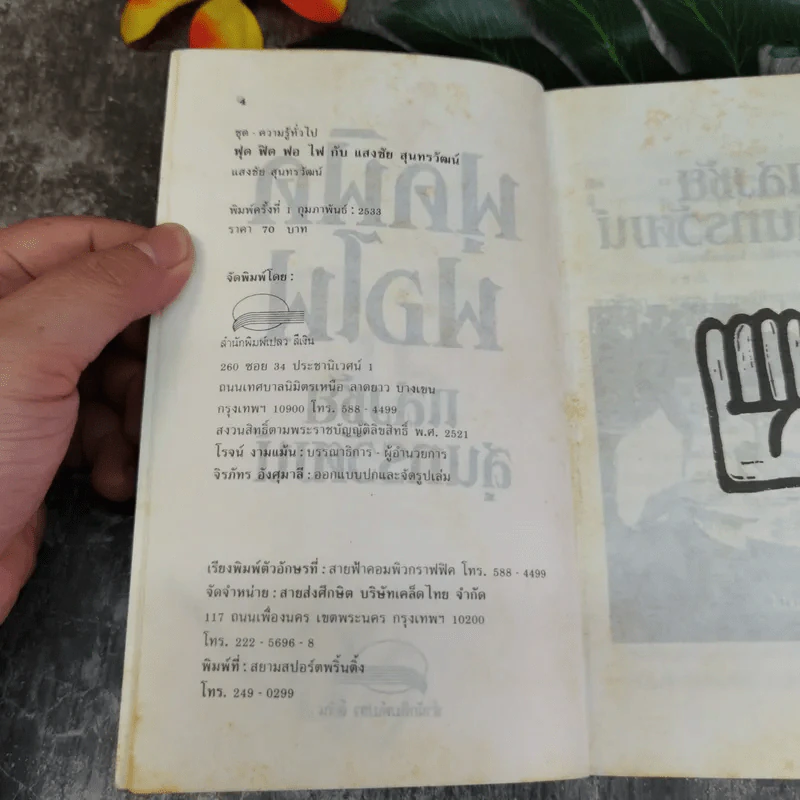 4
ชุด - ความรู้ทั่วไป
ฟุด ฟิด ฟอ ไฟ กับ แสงชัย สุนทรวัฒน์
แสงชัย สุนทรวัฒน์
พิมพ์ครั้งที่ 1 กุมภาพันธ์ : 2533
ราคา 70 บาท
จัดพิมพ์โดย :
สำนักพิมพ์เปลว สีเงิน
260 ซอย 34 ประชานิเวศน์ 1
ถนนเทศบาลนิมิตรเหนือ ลาดยาว บางเขน
กรุงเทพฯ 10900 โทร. 588 - 4499
สงวนสิทธิ์ตามพระราชบัญญัติลิขสิทธิ์ พ.ศ. 2521
โรจน์ งามแม้น : บรรณาธิการ - ผู้อำนวยการ
จิรภัทร อังศุมาลี : ออกแบบปกและจัดรูปเล่ม
เรียงพิมพ์ตัวอักษรที่ : สายฟ้าคอมพิวกราฟฟิค โทร. 588 - 4499
จัดจำหน่าย : สายส่งศึกษิต บริษัทเคล็ดไทย จำกัด
117 ถนนเฟื่องนคร เขตพระนคร กรุงเทพฯ 10200
โทร. 222 - 5696 - 8
พิมพ์ที่ : สยามสปอร์ตพริ้นติ้ง
โทร. 249 - 0299